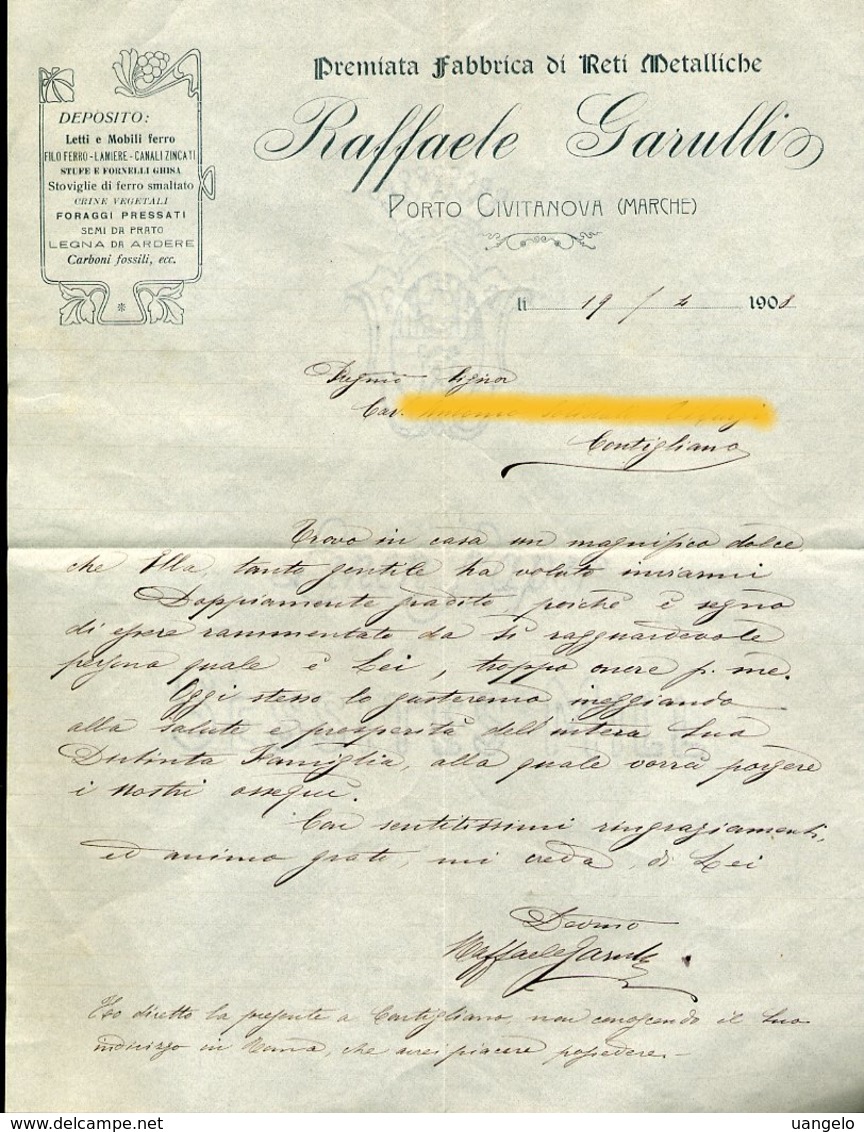 Premiata Fabbrica di Reti Metalliche
Raffaele Garulli
PORTO CIVITANOVA (MARCHE)
DEPOSITO:
Letti e Mobili ferro
FILO FERRO-LAMIERE-CANALI ZINCATI
STUFE E FORNELLI GHISA
Stoviglie di ferro smaltato
CRINE VEGETALI
FORAGGI PRESSATI
SEMI DA PRATO
LEGNA DA ARDERE
Carboni fossili, ecc.
li 19 / 2 1908
Pregmo Signor
Cav.
Contigliano
Trovo in casa un magnifico dolce
che Ella, tanto gentile ha voluto inviarmi
Doppiamente gradito poichè è segno
di essere rammentato da sì ragguardevole
persona quale è Lei, troppo onore p. me.
Oggi stesso lo gusteremo ineggiando
alla salute e prosperità dell'intera Sua
Distinta Famiglia, alla quale vorrà porgere
i nostri ossequi.
Coi sentitissimi ringraziamenti,
ed animo grato, mi creda, di Lei
Devmo
Raffaele Garulli
Ho diretto la presente a Contigliano, non conoscendo il Suo
indirizzo in Roma, che avrei piacere possedere.-
www.delcampe.net
uangelo